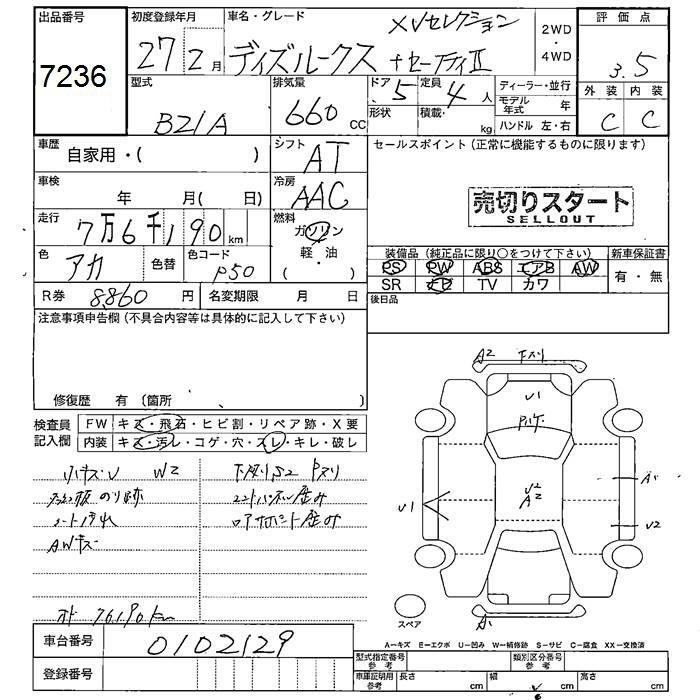 出品番号
7236
初度登録年月
27年2月
車名・グレード
XVセレクション
デイズルークス +セーフティII
2WD・4WD
評価点
3.5
外装 内装
C C
型式
B21A
排気量
660 CC
ドア 5
形状
定員 4人
積載 kg
ディーラー・並行
モデル年式 年
ハンドル 左・右
車歴
自家用・( )
シフト
AT
車検
年 月( 日)
冷房
AAC
走行
7万6千190 km
燃料
ガソリン
軽・油
( )
色
アカ
色替
色コード
P50
R券 8860 円
名変期限 月 日
セールスポイント(正常に機能するものに限ります)
売切りスタート
SELLOUT
装備品(純正品に限り○をつけて下さい)
新車保証書
PS PW ABS エアB AW
有・無
SR ナビ TV カワ
後日品
注意事項申告欄(不具合内容等は具体的に記入して下さい)
修復歴 有(箇所 )
検査員記入欄
FW キズ・飛石・ヒビ割・リペア跡・X要
内装 キズ・汚レ・コゲ・穴・スレ・キレ・破レ
小キズU W2
下廻りS2 下スリ
のり跡
シート汚れ
AWキズ
ロアサポート歪み
76190km
A2 下スリ
U1
U2
A2
U1
A1
U2
A1
スペア
車台番号
0102129
登録番号
A=キズ E=エクボ U=凹み W=補修跡 S=サビ C=腐食 XX=交換済
型式指定番号 参考
類別区分番号 参考
車庫証明用 参考
長さ cm 幅 cm 高さ cm